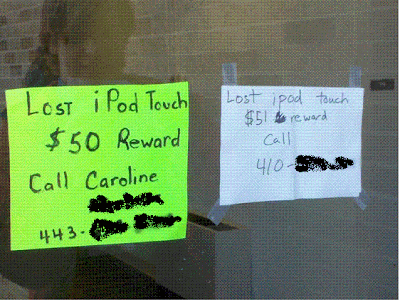 Lost iPod Touch
$50 Reward
Call Caroline
443-
Lost ipod touch
$51 reward
Call
410-